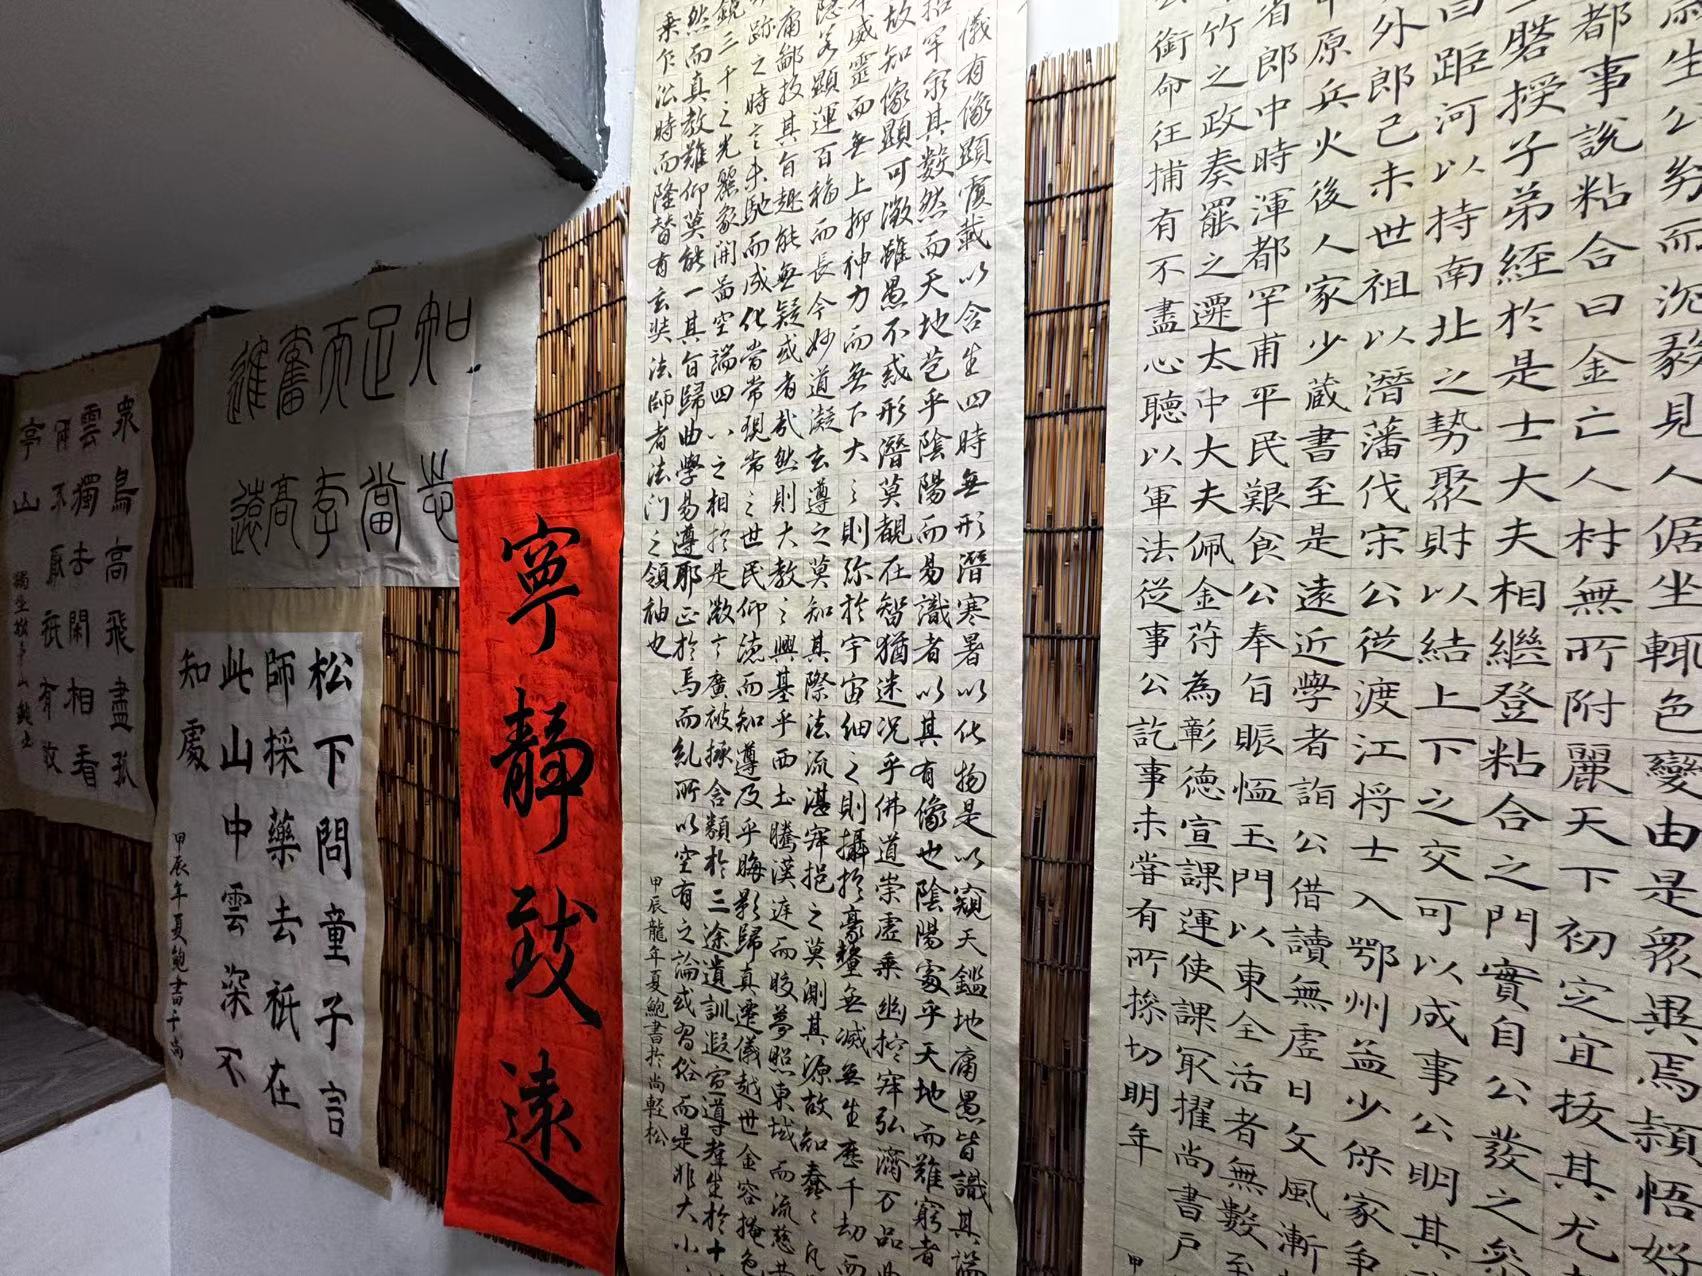 衆鳥高飛盡孤
雲獨去閑相看
不厭衹有敬
亭山
知足而奮進
志當存高遠
松下問童子言
師採藥去衹在
此山中雲深不
知處
甲辰年夏鮑書于尚
寧靜致遠
儀有像顯覆載以含生四時無形潛寒暑以化物是以窺天鑑地庸愚皆識其端
罕窮其數然而天地苞乎陰陽而易識者以其有像也陰陽處乎天地而難窮者
故知像顯可徵雖愚不惑形潛莫覩在智猶迷况乎佛道崇虛乘幽控寂弘濟万品
威靈而無上抑神力而無下大之則弥於宇宙細之則攝於豪釐無滅無生歷千劫而
隱若顯運百福而長今妙道凝玄遵之莫知其際法流湛寂挹之莫測其源故知蠢蠢凡
庸鄙投其旨趣能無疑或者哉然則大教之興基乎西土騰漢庭而皎夢照東域而流慈
跡之時言未馳而成化當常現常之世民仰德而知遵及乎晦影歸真遷儀越世金容掩色
銳三千之光麗象開圖空端四八之相於是微言廣被拯含類於三途遺訓遐宣導羣生於十
然而真教難仰莫能一其旨歸曲學易遵耶正於焉而紛所以空有之論或習俗而是非大小
乘乍沿時而隆替有玄奘法師者法門之領袖也
甲辰龍年夏鮑書於尚輕松
生公幼而沉毅見人倨坐輒色變由是衆異焉穎悟好
都事說粘合曰金亡人材無所附麗天下初定宜拔其尤
磐授子弟經於是士大夫相繼登粘合之門實自公發之
曰距河以持南北之勢聚財以結上下之交可以成事公明其
外郎己未世祖以潛藩伐宋公從渡江將士入鄂州益少保家
原兵火後人家少藏書至是遠近學者詣公借讀無虛日文風漸
省郎中時渾都罕甫平民艱食公奉旨賑恤玉門以東全活者無數至
竹之政奏罷之遷太中大夫佩金符為彰德宣課運使課最擢尚書戶
銜命往捕有不盡心聽以軍法從事公訖事未嘗有所操切明年